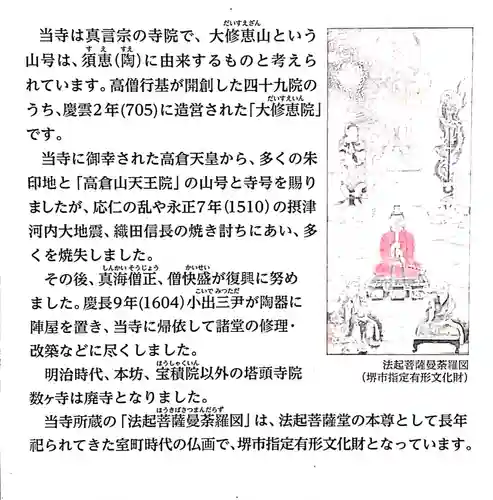 当寺は真言宗の寺院で、大修恵山という
山号は、須恵(陶)に由来するものと考えら
れています。高僧行基が開創した四十九院の
うち、慶雲2年(705)に造営された「大修恵院」
です。
当寺に御幸された高倉天皇から、多くの朱
印地と「高倉山天王院」の山号と寺号を賜り
ましたが、応仁の乱や永正7年(1510)の摂津
河内大地震、織田信長の焼き討ちにあい、多
くを焼失しました。
その後、真海僧正、僧快盛が復興に努め
ました。慶長9年(1604)小出三尹が陶器に
陣屋を置き、当寺に帰依して諸堂の修理・
改築などに尽くしました。
明治時代、本坊、宝積院以外の塔頭寺院
数ヶ寺は廃寺となりました。
当寺所蔵の「法起菩薩曼荼羅図」は、法起菩薩堂の本尊として長年
祀られてきた室町時代の仏画で、堺市指定有形文化財となっています。
法起菩薩曼荼羅図
(堺市指定有形文化財)
だいすえざん
す え すえ
だいすえいん
しんかいそうじょう かいせい
こいで みつただ
ほうしゃくいん
ほうきぼさつまんだらず